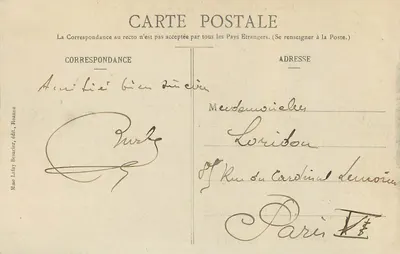 CARTE POSTALE
La Correspondance au recto n'est pas acceptée par tous les Pays Etrangers. (Se renseigner à la Poste.)
CORRESPONDANCE
ADRESSE
Amitié bien sincère
Mesdemoiselles
Loridou
Rue du Cardinal Lemoine
Paris V